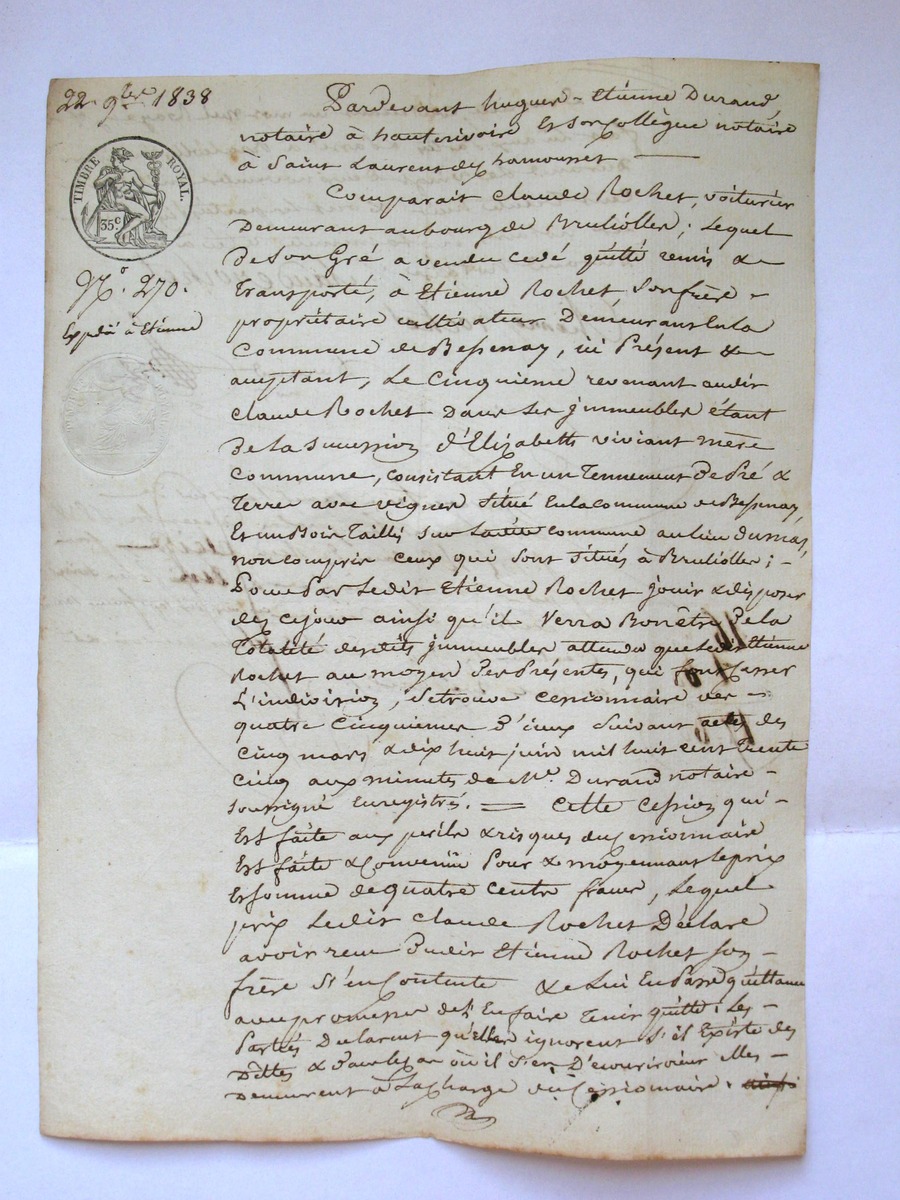 22. 9bre 1838
TIMBRE ROYAL.
35 c.
N.° 270.
Expédié à Etienne
Pardevant hugues-Etienne Durand,
notaire à hauterivoire Et son collègue notaire
à Saint Laurent de chamousset
Comparait Claude Rochet, voiturier
Demeurant au bourg de Brulioller; Lequel
De Son Gré a vendu cédé quitté remis &
transporté, à Etienne Rochet, Son frère
propriétaire cultivateur Demeurant En la
Commune de Bessenay, ici Présent &
acceptant, Le Cinquieme revenant audit
Claude Rochet Dans Les jmmeubles étant
De la succession d'Elizabeth viviant mère
Commune, consistant En un Tennement De Pré &
Terre avec vignes Situé En la commune de Bessenay,
Et un Bois Taillis Sur Ladite commune au lieu Dumas,
non compris ceux qui sont Situés à Brulioller;
Pour Par Ledit Etienne Rochet jouir & disposer
dès cejour ainsi qu'il Verra Bon être De la
Totalité desdits jmmeubles attendu que Ledit Etienne
Rochet au moyen Des Présentes, qui font cesser
L'indivision, Se trouve Cessionnaire des
quatre Cinquiemes D'iceux Suivant actes des
Cinq mars & dix huit juin mil huit cent trente
Cinq aux minutes de Me. Durand notaire
soussigné Enregistrés. = Cette Cession qui
Est faite aux perils & risques du Cessionnaire
Est faite & Convenüe Pour & moyennant le prix
Et somme de quatre Cents francs, Lequel
prix Ledit Claude Rochet Déclare
avoir reçu Dudit Etienne Rochet Son
frère S'en Contente & Lui En Passe quittance
avec promesse de L'En faire Tenir quitte; Les
Parties Déclarent qu'elles ignorent S'il Existe des
Dettes & Dans le Cas où il S'en Découvriroient Elles
Demeurent à La charge du Cessionnaire.